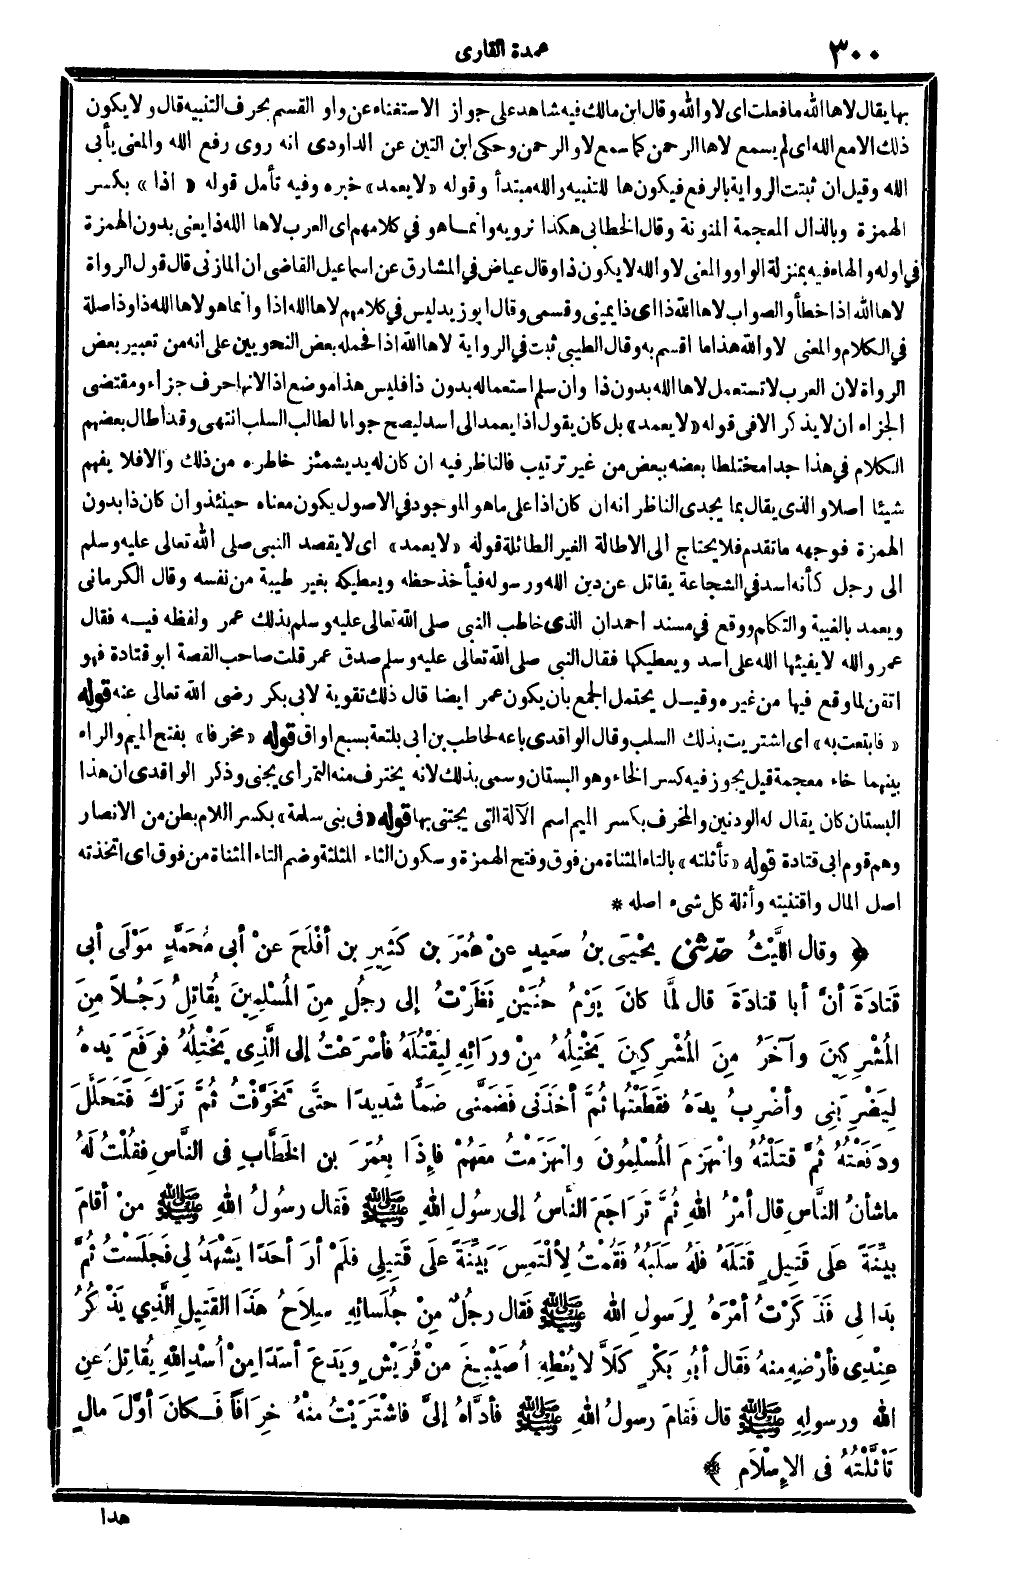 ٣٠٠
عمدة القارى
بها يقال لاها الله ما فعلت اى لا والله وقال ابن مالك فيه شاهد على جواز الاستغناء عن واو القسم بحرف التنبيه قال ولا يكون
ذلك الا مع الله اى لم يسمع لاها الرحمن كما سمع لا والرحمن وحكى ابن التين عن الداودى انه روى رفع الله والمعنى يأبى
الله وقيل ان ثبتت الرواية بالرفع فيكون ها للتنبيه والله مبتدأ وقوله «لا يعمد» خبره وفيه تأمل قوله «اذا» بكسر
الهمزة وبالذال المعجمة المنونة وقال الخطابى هكذا نرويه وانما هو في كلامهم اى العرب لاها الله ذا يعنى بدون الهمزة
في اوله والهاء فيه بمنزلة الواو والمعنى لا والله لا يكون ذا وقال عياض في المشارق عن اسماعيل القاضى ان المازنى قال قول الرواة
لاها الله اذا خطأ والصواب لاها الله ذا اى ذا يمينى وقسمى وقال ابو زيد ليس في كلامهم لاها الله اذا وانما هو لاها الله ذا وذا صلة
في الكلام والمعنى لا والله هذا ما اقسم به وقال الطيبى ثبت في الرواية لاها الله اذا فحمله بعض النحويين على انه من تعبير بعض
الرواة لان العرب لا تستعمل لاها الله بدون ذا وان سلم استعماله بدون ذا فليس هذا موضع اذا لانها حرف جزاء ومقتضى
الجزاء ان لا يذكر الا في قوله «لا يعمد» بل كان يقول اذا يعمد الى اسد ليصح جوابا لطالب السلب انتهى وقد اطال بعضهم
الكلام في هذا جدا مختلطا بعضه ببعض من غير ترتيب فالناظر فيه ان كان له يد يشمئز خاطره من ذلك والا فلا يفهم
شيئا اصلا والذى يقال بما يجدى الناظر انه ان كان اذا على ما هو الموجود في الاصول يكون معناه حينئذ وان كان ذا بدون
الهمزة فوجهه ما تقدم فلا يحتاج الى الاطالة الغير الطائلة قوله «لا يعمد» اى لا يقصد النبى صلى الله تعالى عليه وسلم
الى رجل كأنه اسد في الشجاعة يقاتل عن دين الله ورسوله فيأخذ حظه ويعطيكه بغير طيبة من نفسه وقال الكرمانى
ويعمد بالغيبة والتكلم ووقع في مسند احمد ان الذى خاطب النبى صلى الله تعالى عليه وسلم بذلك عمر ولفظه فيه فقال
عمر والله لا يفيئها الله على اسد ويعطيكها فقال النبى صلى الله تعالى عليه وسلم صدق عمر قلت صاحب القصة ابو قتادة فهو
اتقن لما وقع فيها من غيره وقيل يحتمل الجمع بان يكون عمر ايضا قال ذلك تقوية لابى بكر رضى الله تعالى عنه قوله
«فابتعت به» اى اشتريت بذلك السلب وقال الواقدى باعه لحاطب بن ابى بلتعة بسبع اواق قوله «مخرفا» بفتح الميم والراء
بينهما خاء معجمة قيل يجوز فيه كسر الخاء وهو البستان وسمى بذلك لانه يخترف منه التمر اى يجنى وذكر الواقدى ان هذا
البستان كان يقال له الودنين والمخرف بكسر الميم اسم الآلة التى يجتنى بها قوله «فى بنى سلمة» بكسر اللام بطن من الانصار
وهم قوم ابى قتادة قوله «تأثلته» بالتاء المثناة من فوق وفتح الهمزة وسكون الثاء المثلثة وضم التاء المثناة من فوق اى اتخذته
اصل المال واقتنيته وأثلة كل شىء اصله *
﴿ وقال اللَّيْثُ حدّثنى يحْيَى بنُ سَعيدٍ عنْ عُمَرَ بن كَثِيرِ بن أفْلَحَ عنْ أبى مُحَمَّدٍ مَوْلَى أبى
قَتادَةَ أنَّ أبا قتادَةَ قال لمَّا كانَ يَوْمُ حُنَيْنٍ نَظَرْتُ إلى رجُلٍ مِنَ المُسْلِمِينَ يُقاتِلُ رَجُلاً مِنَ
المُشْرِكِينَ وآخَرُ مِنَ المُشْرِكِينَ يَخْتِلُهُ مِنْ ورَائِهِ لِيَقْتُلَهُ فأسْرَعْتُ إلى الَّذِى يَخْتِلُهُ فرَفَعَ يَدهُ
لِيَضْرِبَنِى وأضْرِبُ يدَهُ فقَطَعْتُها ثُمَّ أخذَنى فَضَمَّنى ضَمًّا شَدِيدًا حتَّى تَخَوَّفْتُ ثُمَّ تَرَكَ فَتَحَلَّلَ
ودَفَعْتُهُ ثُمَّ قتَلْتُهُ وانْهزَمَ المُسْلِمُونَ وانْهَزَمْتُ معَهُمْ فإذَا بِعُمَرَ بن الخَطَّابِ فى النَّاسِ فقُلْتُ لَهُ
ماشأنُ النَّاسِ قال أمْرُ اللهِ ثُمَّ تَرَاجَعَ النَّاسُ إلى رسُولِ اللهِ ﷺ فَقال رسُولُ اللهِ ﷺ منْ أقامَ
بيِّنَةً على قَتِيلٍ قَتَلَهُ فَلَهُ سلَبُهُ فَقُمْتُ لِألْتَمِسَ بَيِّنَةً علَى قَتِيلِى فلَمْ أرَ أحَدًا يَشْهَدُ لِى فجَلَسْتُ ثُمَّ
بدَا لِى فَذَكَرْتُ أمْرَهُ لِرَسولِ الله ﷺ فَقال رجُلٌ مِنْ جُلَسائِهِ سِلاَحُ هَذَا القَتِيلِ الَّذِي يَذْكُرُ
عِنْدِى فأرْضِهِ مِنهُ فقال أبُو بَكْرٍ كَلاَّ لا يُعْطِهِ اُصَيْبِغَ منْ قُرَيْشٍ ويَدَعَ أسَدًا مِنْ اُسْدِ اللهِ يُقاتِلُ عنِ
الله ورسولِهِ ﷺ قال فَقامَ رسولُ اللهِ ﷺ فأدَّاهُ إلىَّ فاشْتَرَيْتُ مِنْهُ خِرَافاً فَكانَ أوَّلَ مالٍ
تَأثَّلْتُهُ فى الإسْلاَمِ ﴾
هذا